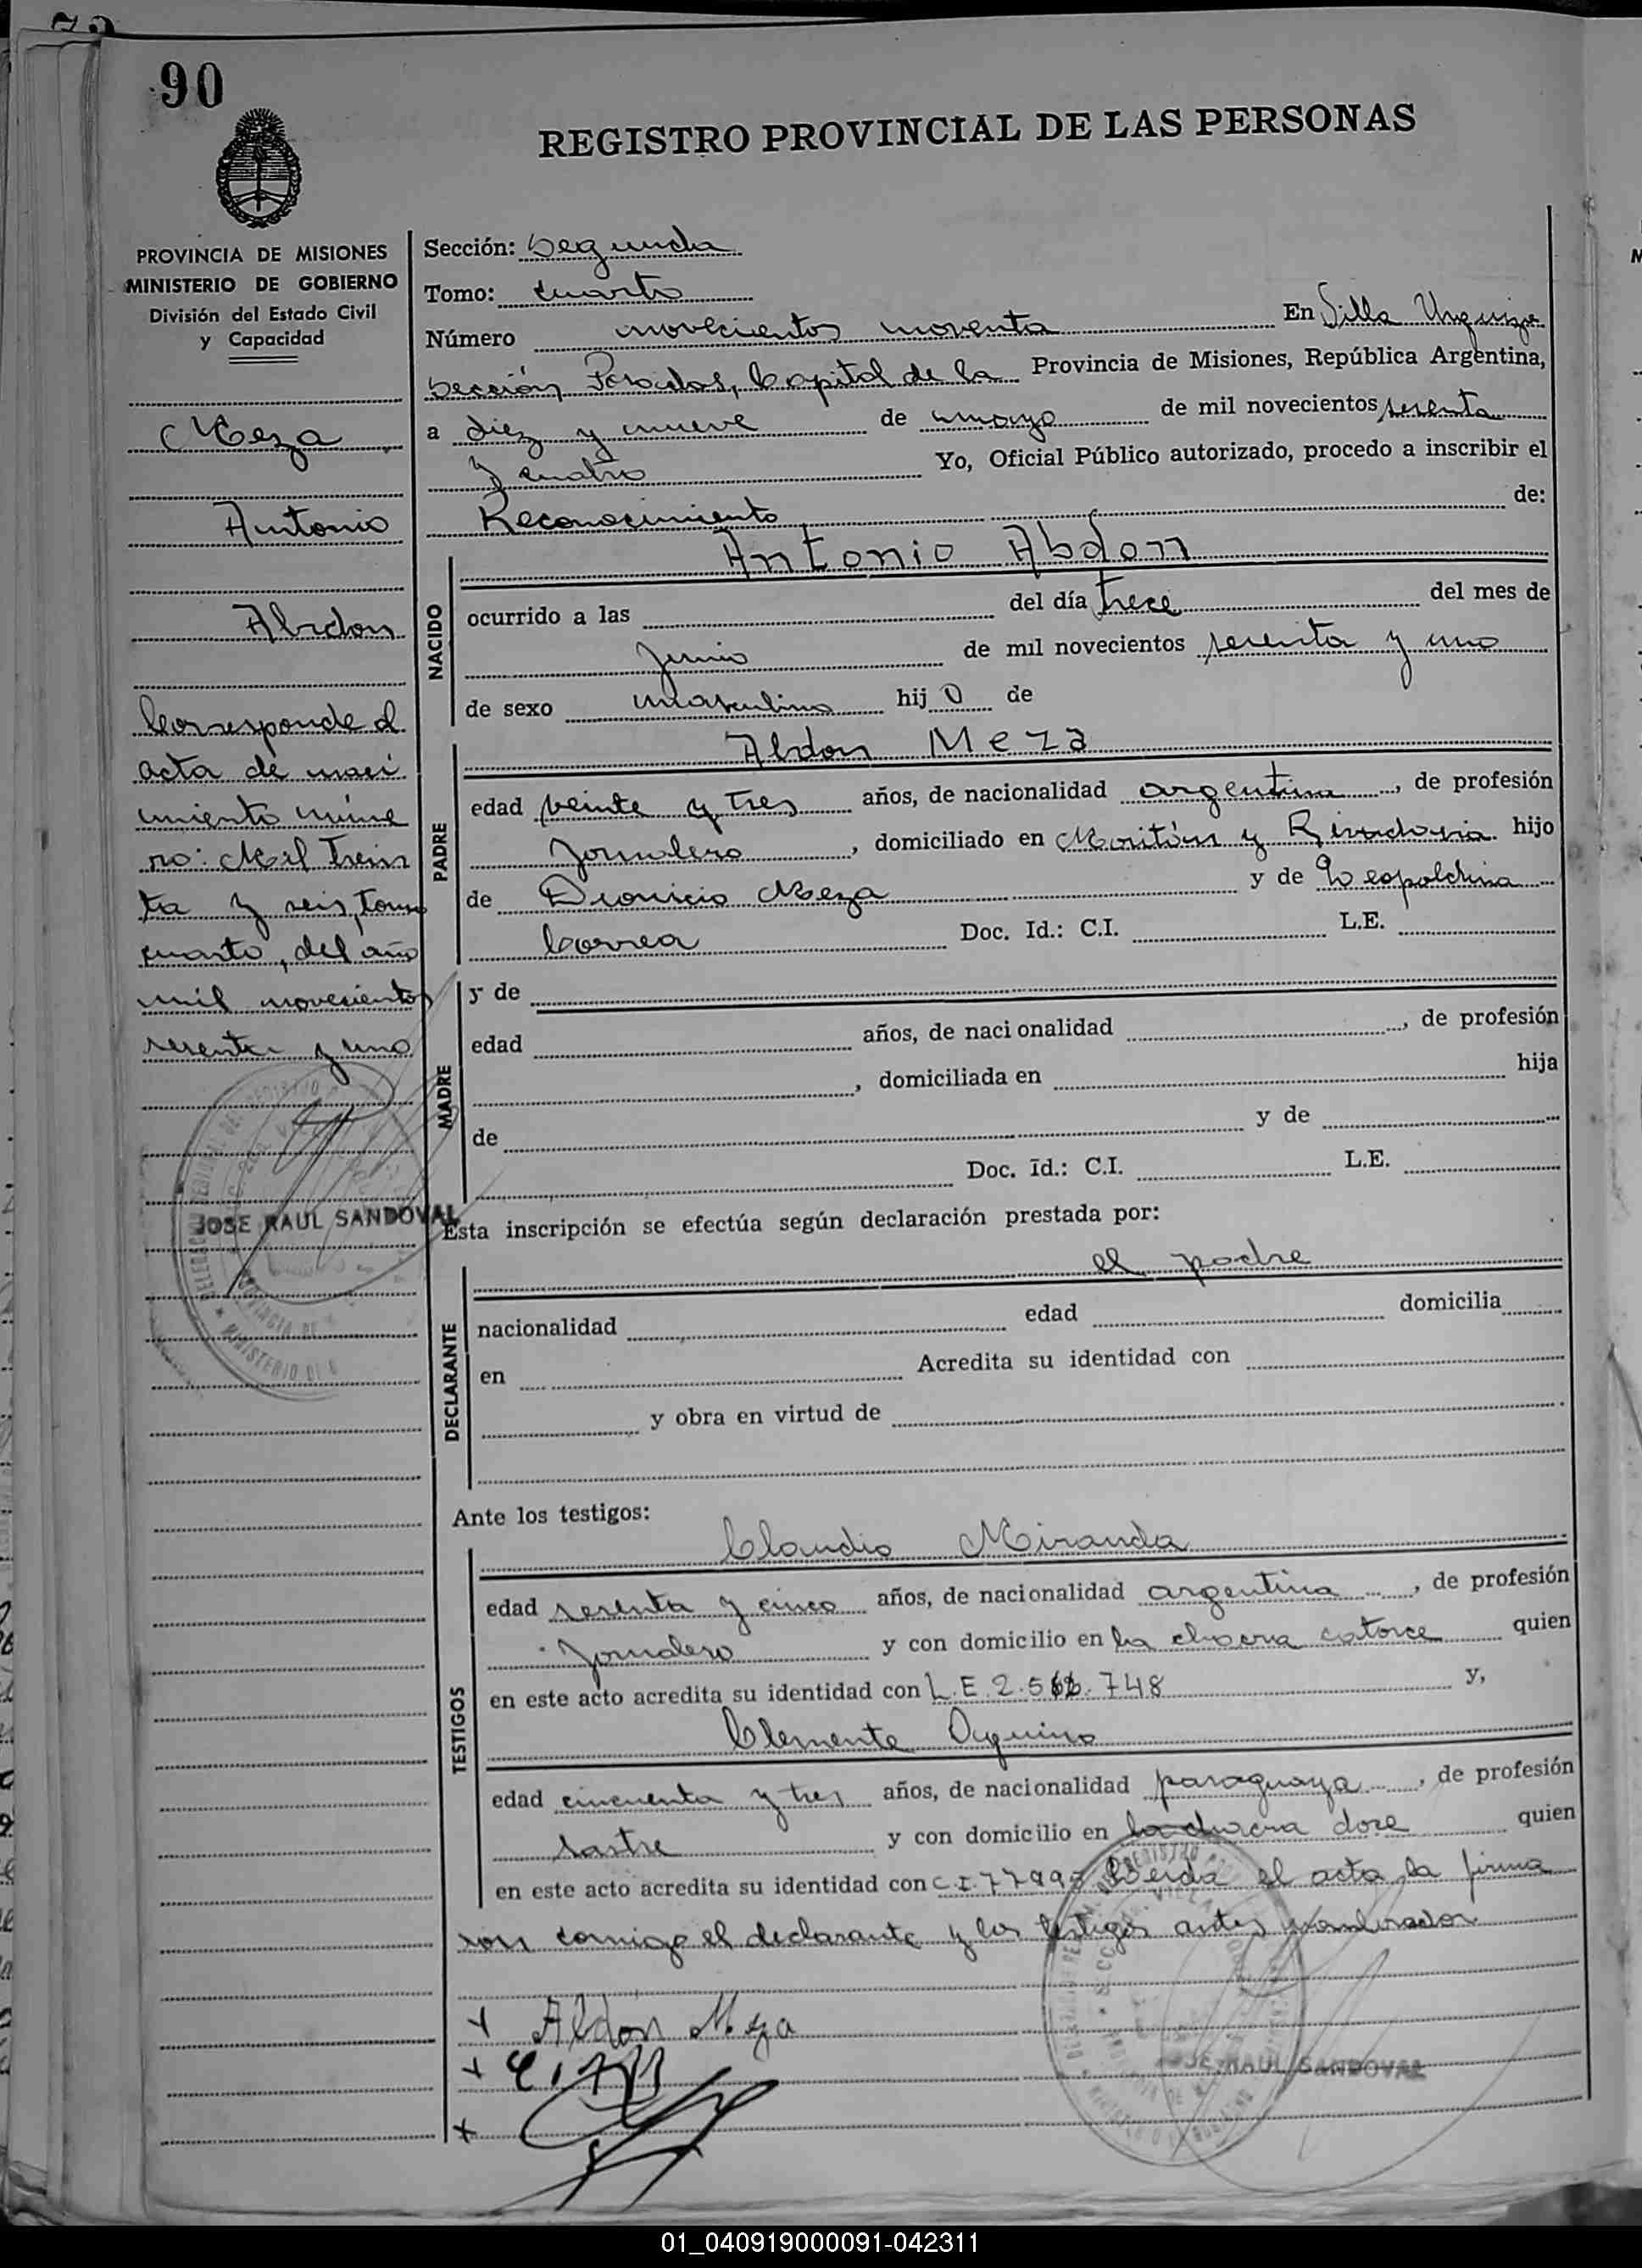 90
REGISTRO PROVINCIAL DE LAS PERSONAS
PROVINCIA DE MISIONES
MINISTERIO DE GOBIERNO
División del Estado Civil
y Capacidad
Meza
Antonio
Abdon
Corresponde al
acta de naci
miento núme
ro: Mil Trein
ta y seis, tomo
cuarto, del año
mil novecientos
sesenta y uno
JOSE RAUL SANDOVAL
Sección: Segunda
Tomo: cuarto
Número novecientos noventa En Villa Urquiza
Sección Posadas, Capital de la Provincia de Misiones, República Argentina,
a diez y nueve de mayo de mil novecientos sesenta
y cuatro Yo, Oficial Público autorizado, procedo a inscribir el
Reconocimiento de:
NACIDO
Antonio Abdon
ocurrido a las del día trece del mes de
Junio de mil novecientos sesenta y uno
de sexo masculino hijo de
PADRE
Abdon Meza
edad veinte y tres años, de nacionalidad argentina, de profesión
Jornalero, domiciliado en y Rivadavia hijo
de Dionicio Meza y de Leopoldina
Correa Doc. Id.: C.I. L.E.
MADRE
y de
edad años, de nacionalidad , de profesión
, domiciliada en hija
de y de
Doc. Id.: C.I. L.E.
Esta inscripción se efectúa según declaración prestada por:
DECLARANTE
el padre
nacionalidad edad domicilia
en Acredita su identidad con
y obra en virtud de
Ante los testigos:
TESTIGOS
Claudio Miranda
edad sesenta y cinco años, de nacionalidad argentina, de profesión
Jornalero y con domicilio en la chacra catorce quien
en este acto acredita su identidad con L.E. 748 y,
Clemente Aquino
edad cincuenta y tres años, de nacionalidad paraguaya, de profesión
sastre y con domicilio en la chacra doce quien
en este acto acredita su identidad con C.I. Leida el acta la firma
ron comigo el declarante y los testigos antes nombrador
+ Abdón Meza
+
+
JOSE RAUL SANDOVAL
01_040919000091-042311